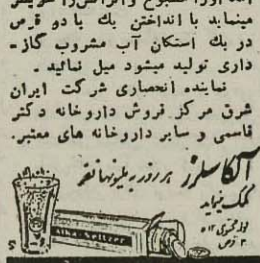 مینماید با انداختن یك یا دو قرص
در یك استکان آب مشروب گاز-
داری تولید میشود میل نمائید .
نماینده انحصاری شرکت ایران
شرق مرکز فروش داروخانه دکتر
قاسمی و سایر داروخانه های معتبر.
آلکاسلزر هر روز به میلیونها نفر
کمک مینماید
Alka-Seltzer